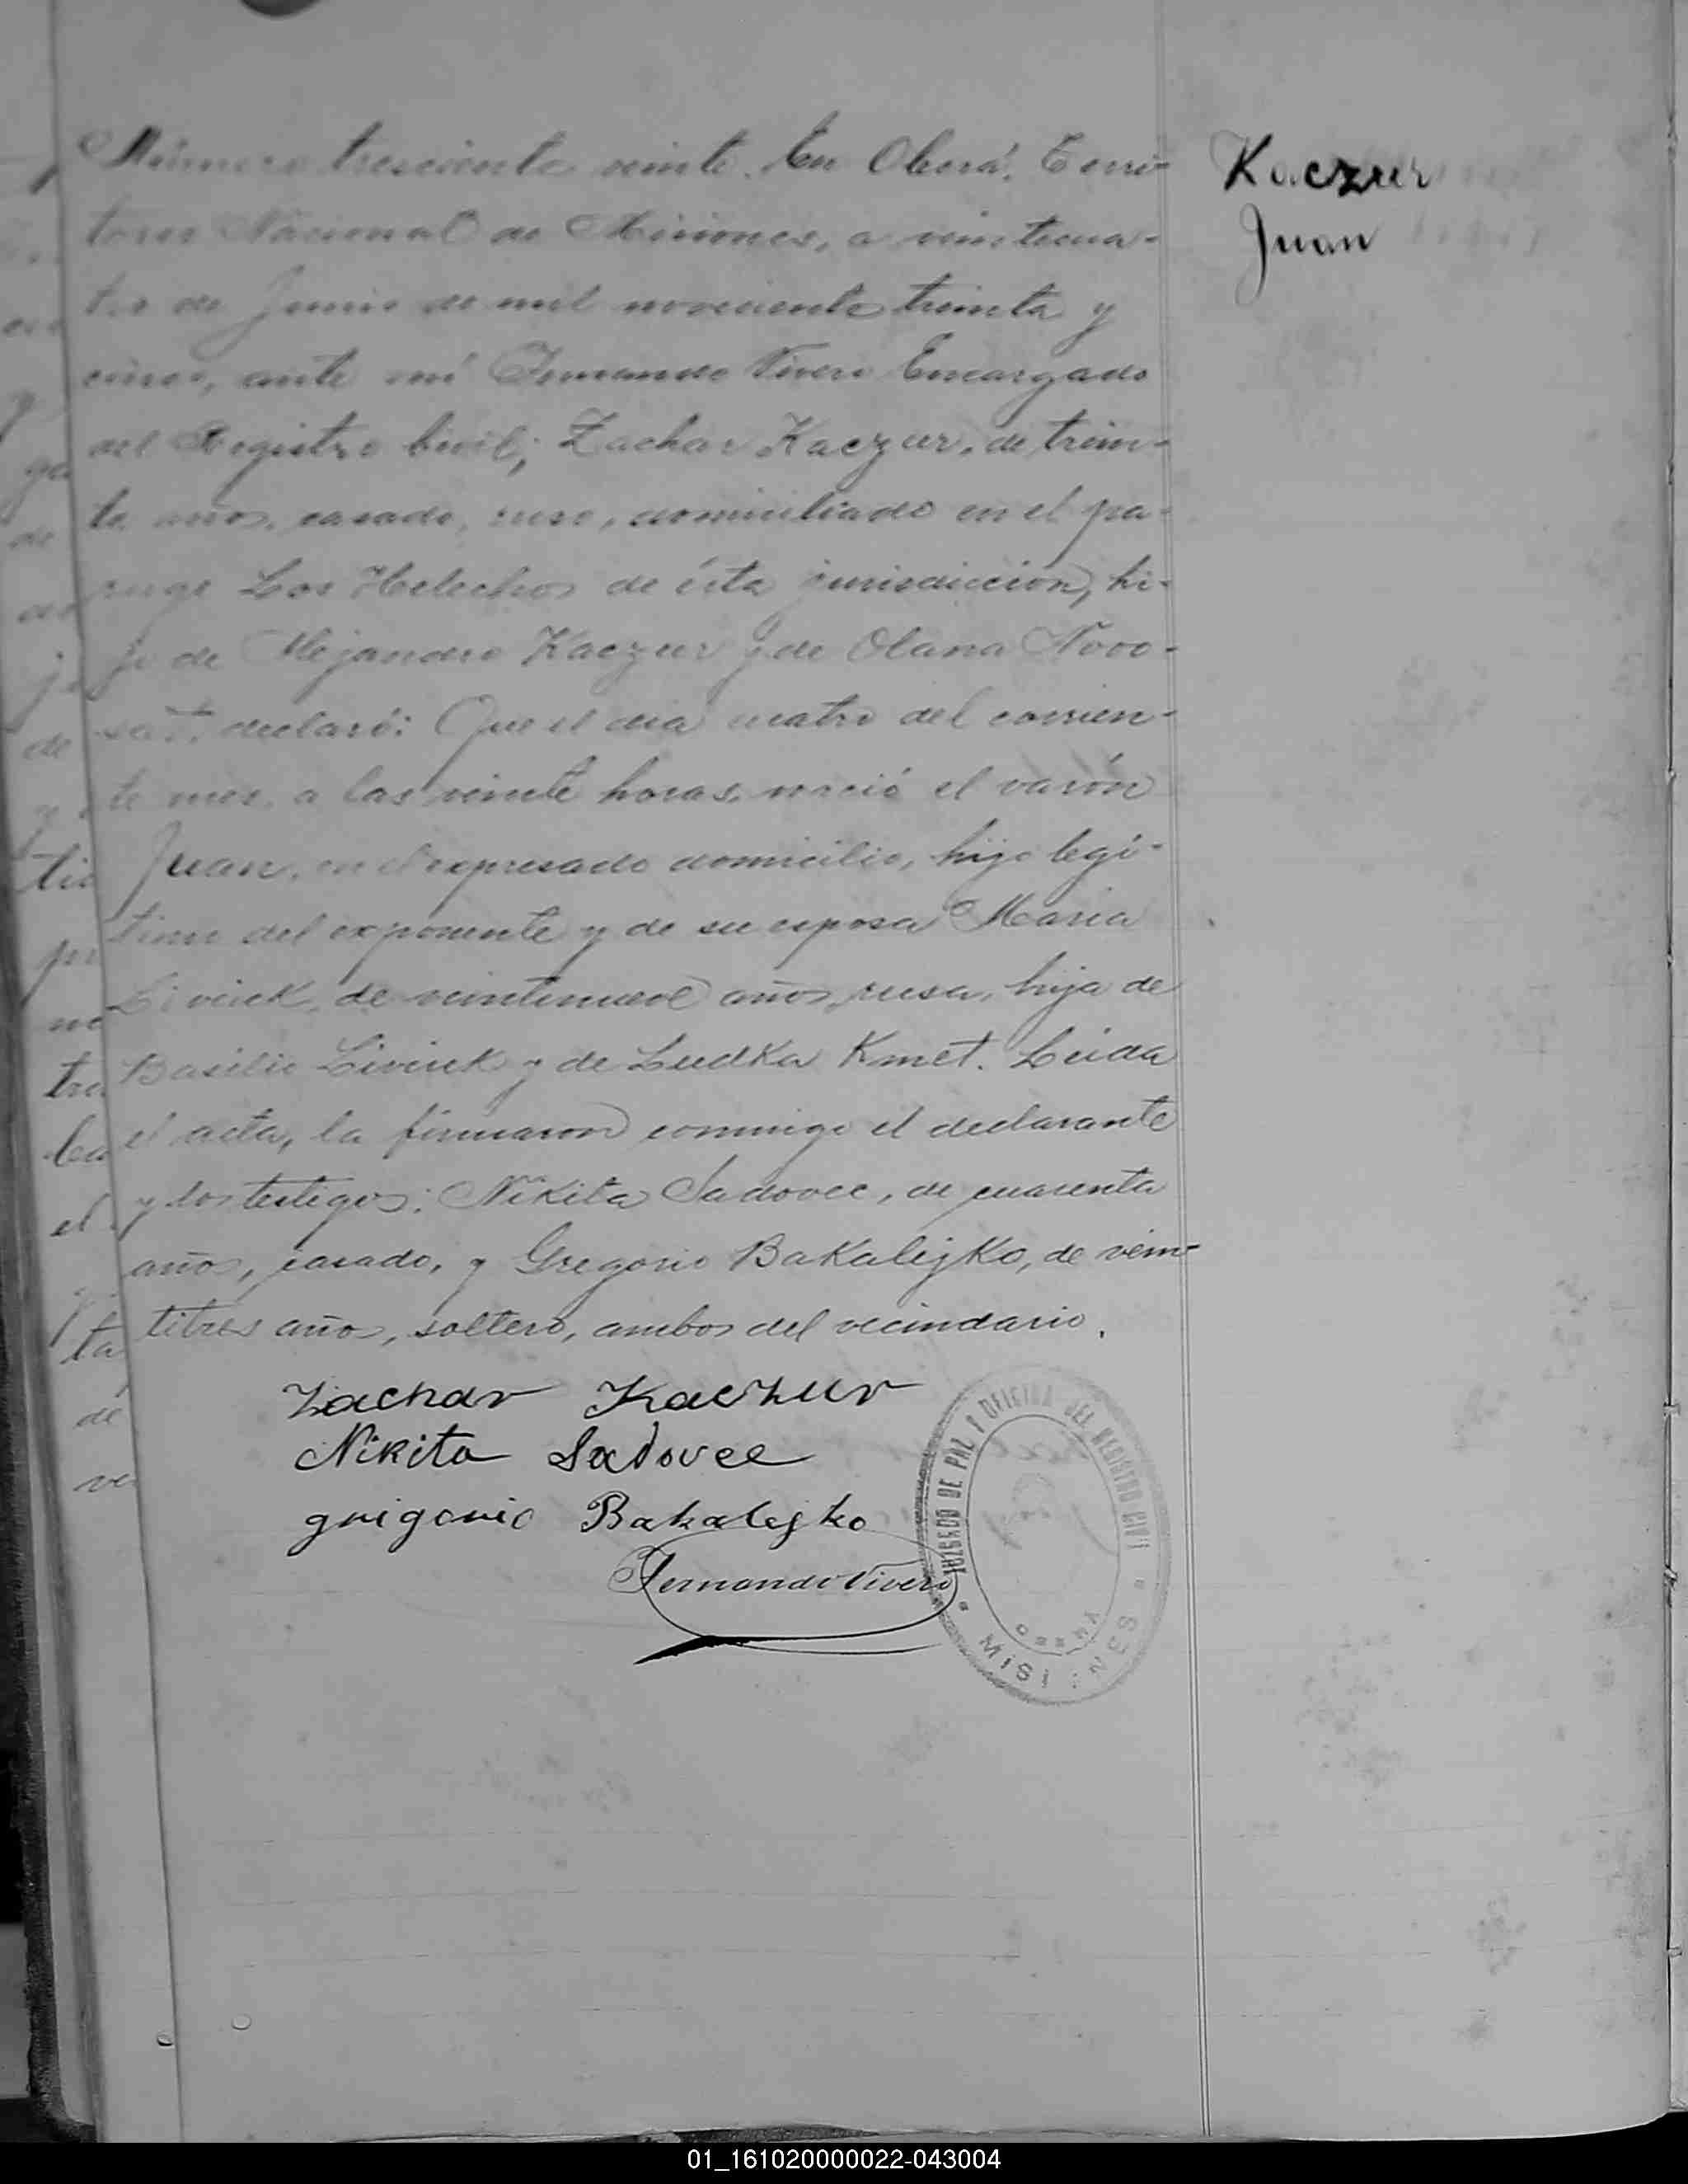 Número trescientos veinte. En Oberá, Terri-
torio Nacional de Misiones, a veinticua-
tro de Junio de mil novecientos treinta y
cinco, ante mí Fernando Vivero Encargado
del Registro Civil; Zachar Kaczur, de trein-
ta años, casado, ruso, domiciliado en el pa-
raje Los Helechos de ésta jurisdicción, hi-
jo de Alejandro Kaczur y de Olana Novo-
sat, declaró: Que el día cuatro del corrien-
te mes, a las veinte horas, nació el varón
Juan, en el expresado domicilio, hijo legí-
timo del exponente y de su esposa María
de veintinueve años, rusa, hija de
Basilio y de Ludka Kmet. Leida
el acta, la firmaron conmigo el declarante
y los testigos: Nikita Sadovec, de cuarenta
años, casado, y Gregorio Bakalejko, de vein-
titres años, soltero, ambos del vecindario.
Kaczur
Juan
Zachar Kaczur
Nikita Sadovec
grigorio Bakalejko
Fernando Vivero
JUZGADO DE PAZ Y OFICINA DEL REGISTRO CIVIL
MISIONES
01_161020000022-043004